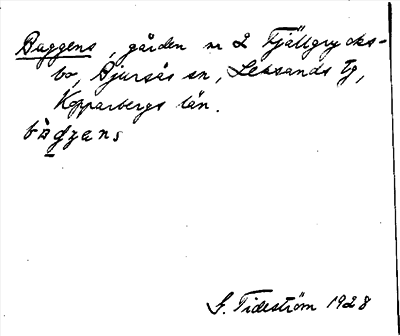 Baggens, gården nr 2 Fjällgrycks-
bo, Bjursås sn, Leksands tg,
Kopparbergs län.
bàgzans
G. Tideström 1928